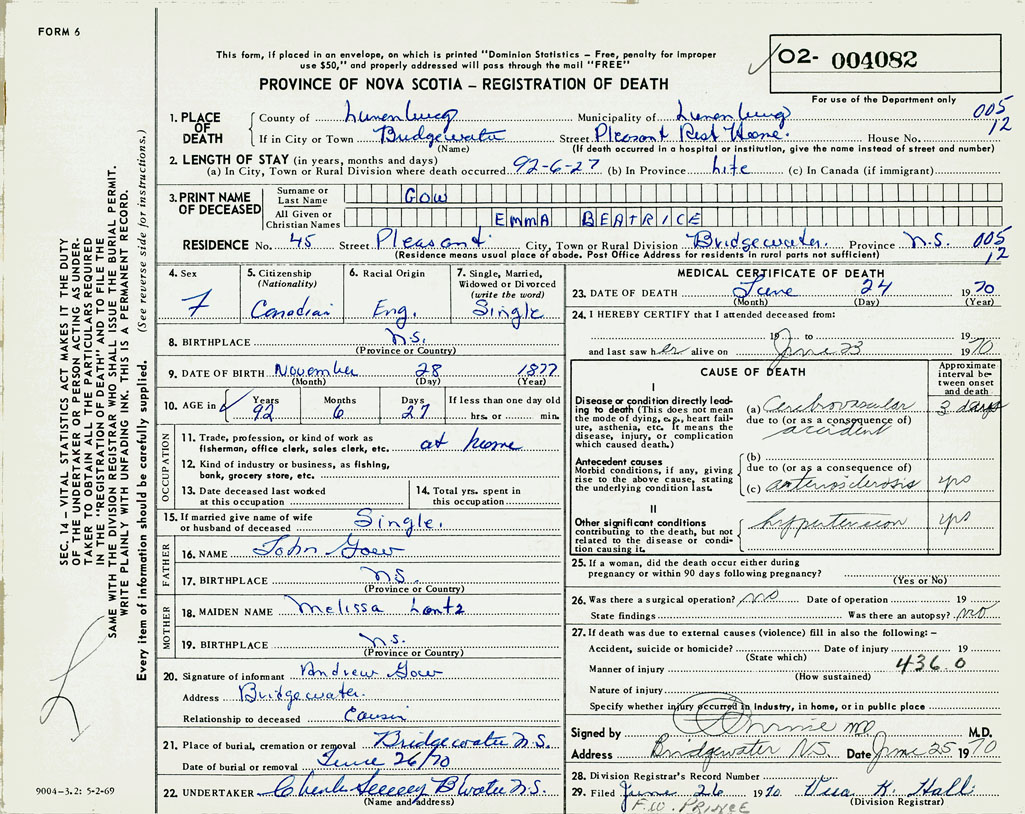 FORM 6
This form, if placed in an envelope, on which is printed "Dominion Statistics – Free, penalty for improper
use $50," and properly addressed will pass through the mail "FREE"
PROVINCE OF NOVA SCOTIA – REGISTRATION OF DEATH
02- 004082
For use of the Department only
1. PLACE OF DEATH
County of Lunenburg Municipality of Lunenburg 005
If in City or Town Bridgewater Street Pleasant Rest Home. House No. 12
(Name) (If death occurred in a hospital or institution, give the name instead of street and number)
2. LENGTH OF STAY (in years, months and days)
(a) In City, Town or Rural Division where death occurred 92-6-27 (b) In Province Life (c) In Canada (if immigrant)
3. PRINT NAME OF DECEASED
Surname or Last Name GOW
All Given or Christian Names EMMA BEATRICE
RESIDENCE No. 45 Street Pleasant City, Town or Rural Division Bridgewater. Province N.S. 005
(Residence means usual place of abode. Post Office Address for residents in rural parts not sufficient) 12
4. Sex
F
5. Citizenship
(Nationality)
Canadian
6. Racial Origin
Eng.
7. Single, Married,
Widowed or Divorced
(write the word)
Single
8. BIRTHPLACE N.S.
(Province or Country)
9. DATE OF BIRTH November 28 1877
(Month) (Day) (Year)
10. AGE in Years Months Days If less than one day old
92 6 27 hrs. or min.
OCCUPATION
11. Trade, profession, or kind of work as
fisherman, office clerk, sales clerk, etc. at home
12. Kind of industry or business, as fishing,
bank, grocery store, etc.
13. Date deceased last worked
at this occupation
14. Total yrs. spent in
this occupation
15. If married give name of wife
or husband of deceased Single.
FATHER
16. NAME John Gow
17. BIRTHPLACE N.S.
(Province or Country)
MOTHER
18. MAIDEN NAME Melissa Lantz
19. BIRTHPLACE N.S.
(Province or Country)
20. Signature of informant Andrew Gow
Address Bridgewater.
Relationship to deceased Cousin
21. Place of burial, cremation or removal Bridgewater N.S.
Date of burial or removal June 26/70
22. UNDERTAKER B'Water N.S.
(Name and address)
MEDICAL CERTIFICATE OF DEATH
23. DATE OF DEATH June 24 1970
(Month) (Day) (Year)
24. I HEREBY CERTIFY that I attended deceased from:
19 to 19
and last saw her alive on June 23 1970
CAUSE OF DEATH
Approximate
interval be-
tween onset
and death
I
Disease or condition directly lead-
ing to death (This does not mean
the mode of dying, e.g., heart fail-
ure, asthenia, etc. It means the
disease, injury, or complication
which caused death.)
(a) Cerebrovascular 3 days
due to (or as a consequence of)
accident
Antecedent causes
Morbid conditions, if any, giving
rise to the above cause, stating
the underlying condition last.
(b)
due to (or as a consequence of)
(c) arteriosclerosis yrs
II
Other significant conditions
contributing to the death, but not
related to the disease or condi-
tion causing it.
hypertension yrs
25. If a woman, did the death occur either during
pregnancy or within 90 days following pregnancy?
(Yes or No)
26. Was there a surgical operation? No Date of operation 19
State findings Was there an autopsy? No
27. If death was due to external causes (violence) fill in also the following: –
Accident, suicide or homicide? Date of injury 19
(State which)
Manner of injury 436.0
(How sustained)
Nature of injury
Specify whether injury occurred in industry, in home, or in public place
Signed by MD M.D.
Address Bridgewater N.S. Date June 25 1970
28. Division Registrar's Record Number
29. Filed June 26 1970 K. Hall
F.W. PRINCE (Division Registrar)
SEC. 14 – VITAL STATISTICS ACT MAKES IT THE DUTY
OF THE UNDERTAKER OR PERSON ACTING AS UNDER-
TAKER TO OBTAIN ALL THE PARTICULARS REQUIRED
IN THE "REGISTRATION OF DEATH" AND TO FILE THE
SAME WITH THE DIVISION REGISTRAR WHO SHALL ISSUE THE BURIAL PERMIT.
WRITE PLAINLY WITH UNFADING INK. THIS IS A PERMANENT RECORD.
Every item of information should be carefully supplied. (See reverse side for instructions.)
9004-3.2: 5-2-69